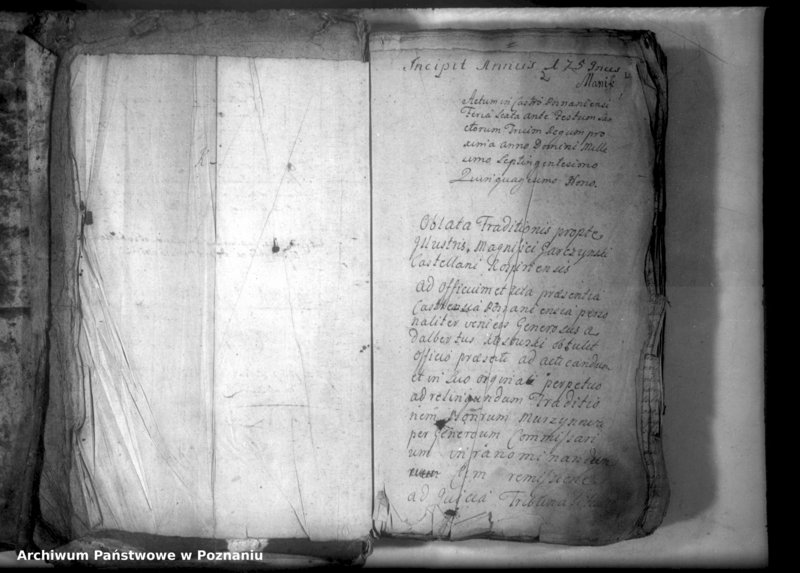 Incipit Annus 175
Actum in Castro Posnaniensi
Feria Sexta ante Festum San
ctorum Trium Regum pro
xima anno Domini Mille
simo Septingentesimo
Quinquagesimo Nono.
Oblata Traditionis propte
Illustris, Magnifici Garczynski
Castellani
Ad Officium et Acta præsentia
Castrensia Posnaniensia perso
naliter veniens Generosus A
dalbertus obtulit
officio præsenti ad acticandum
et in suo originali perpetuo
ad relinquendum Traditio
nem Bonorum
per Generosum Commissari
um infra nominandum
cum remissione
ad Judicia
Archiwum Państwowe w Poznaniu